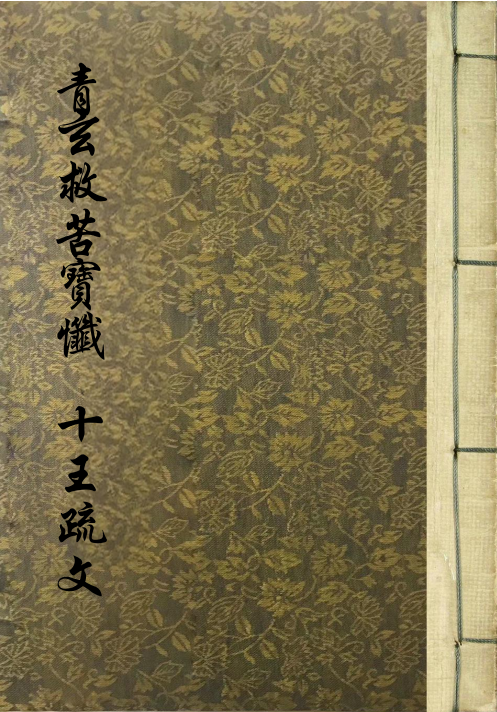 青玄救苦寶懺 十王疏文